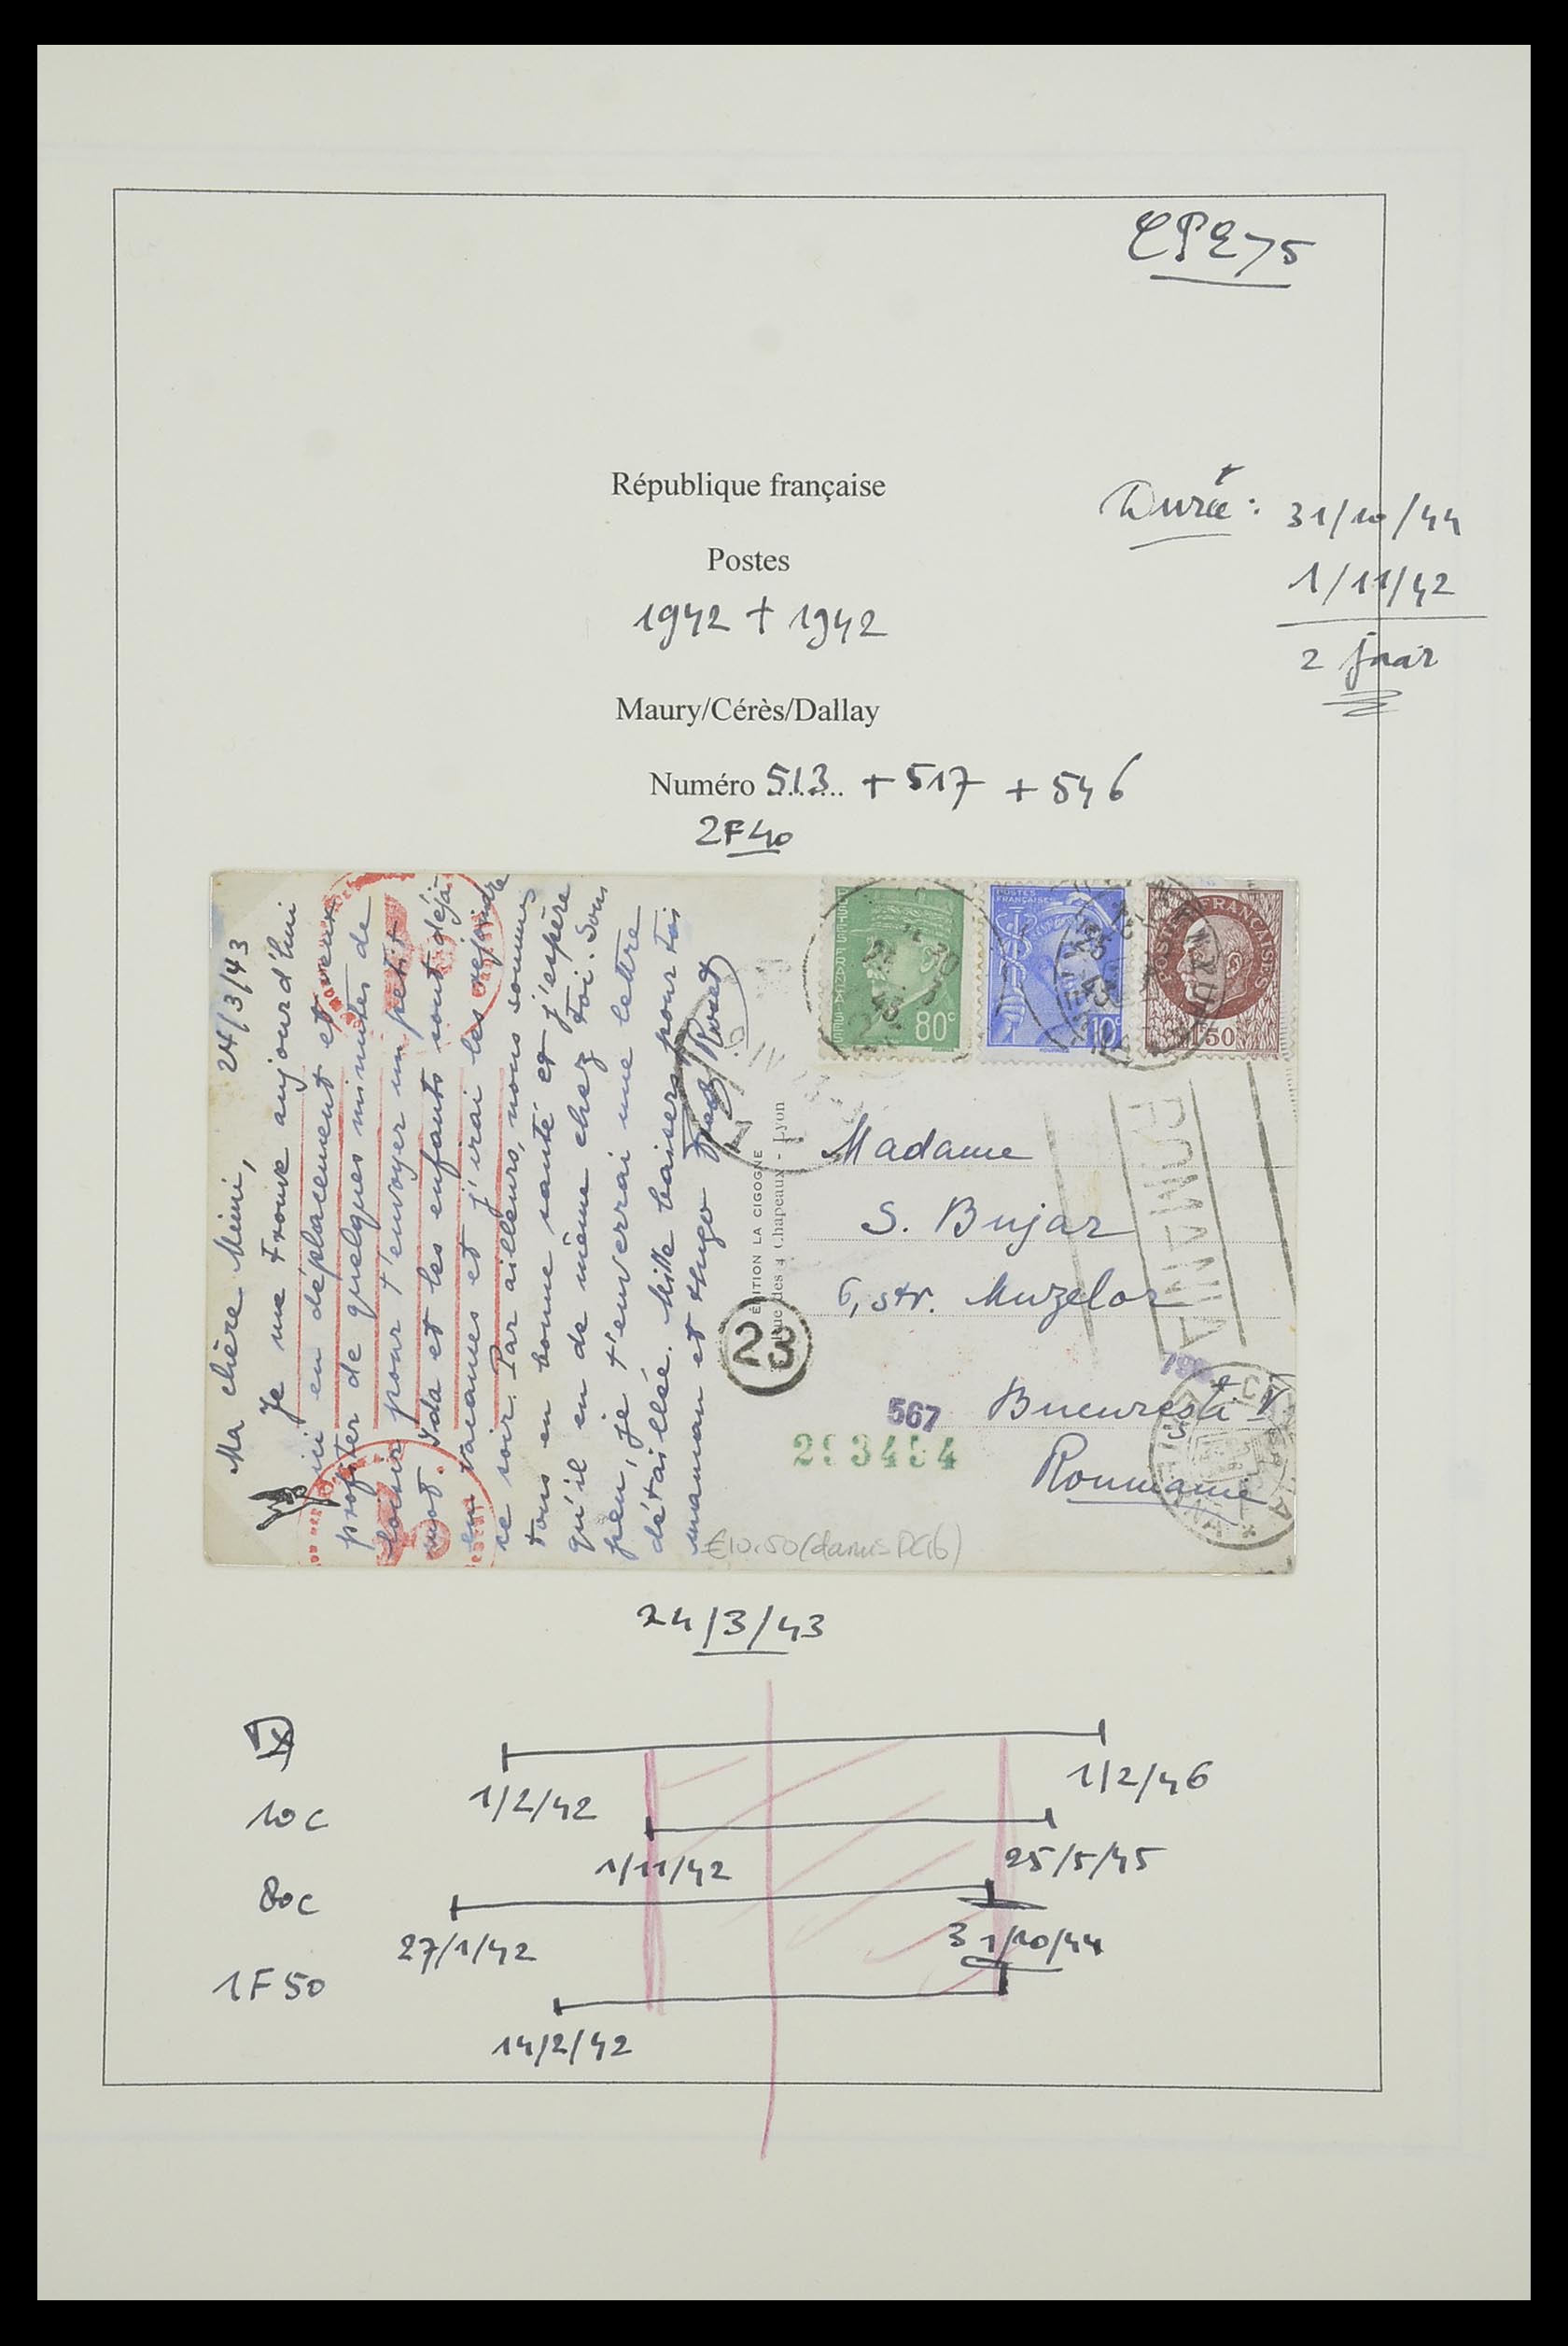 CPE75
République française
Postes
1942 + 1942
Maury/Cérès/Dallay
Numéro 513 + 517 + 546
2F40
Durée : 31/10/44
1/11/42
2 jaar
24/3/43
Ma chère Mimi,
Je me trouve aujourd'hui
ici en déplacement et veux
profiter de quelques minutes de
loisir pour t'envoyer un petit
mot. Ida et les enfants sont déjà
en vacances et j'irai les rejoindre
ce soir. Par ailleurs, nous sommes
tous en bonne santé et j'espère
qu'il en de même chez toi. Sous
peu, je t'enverrai une lettre
détaillée. Mille baisers pour toi
maman et Hugo
ÉDITION LA CIGOGNE
Rue des 4 Chapeaux - Lyon
POSTES FRANÇAISES
80c
POSTES FRANÇAISES
10c
POSTES FRANÇAISES
1F50
Madame
S. Bujar
6, str. Muzelor
Bucuresti I
Roumanie
ROMANIA
23
567
293454
€10.50
24/3/43
1/2/42
1/2/46
10c
1/11/42
25/5/45
80c
27/1/42
31/10/44
1F50
14/2/42